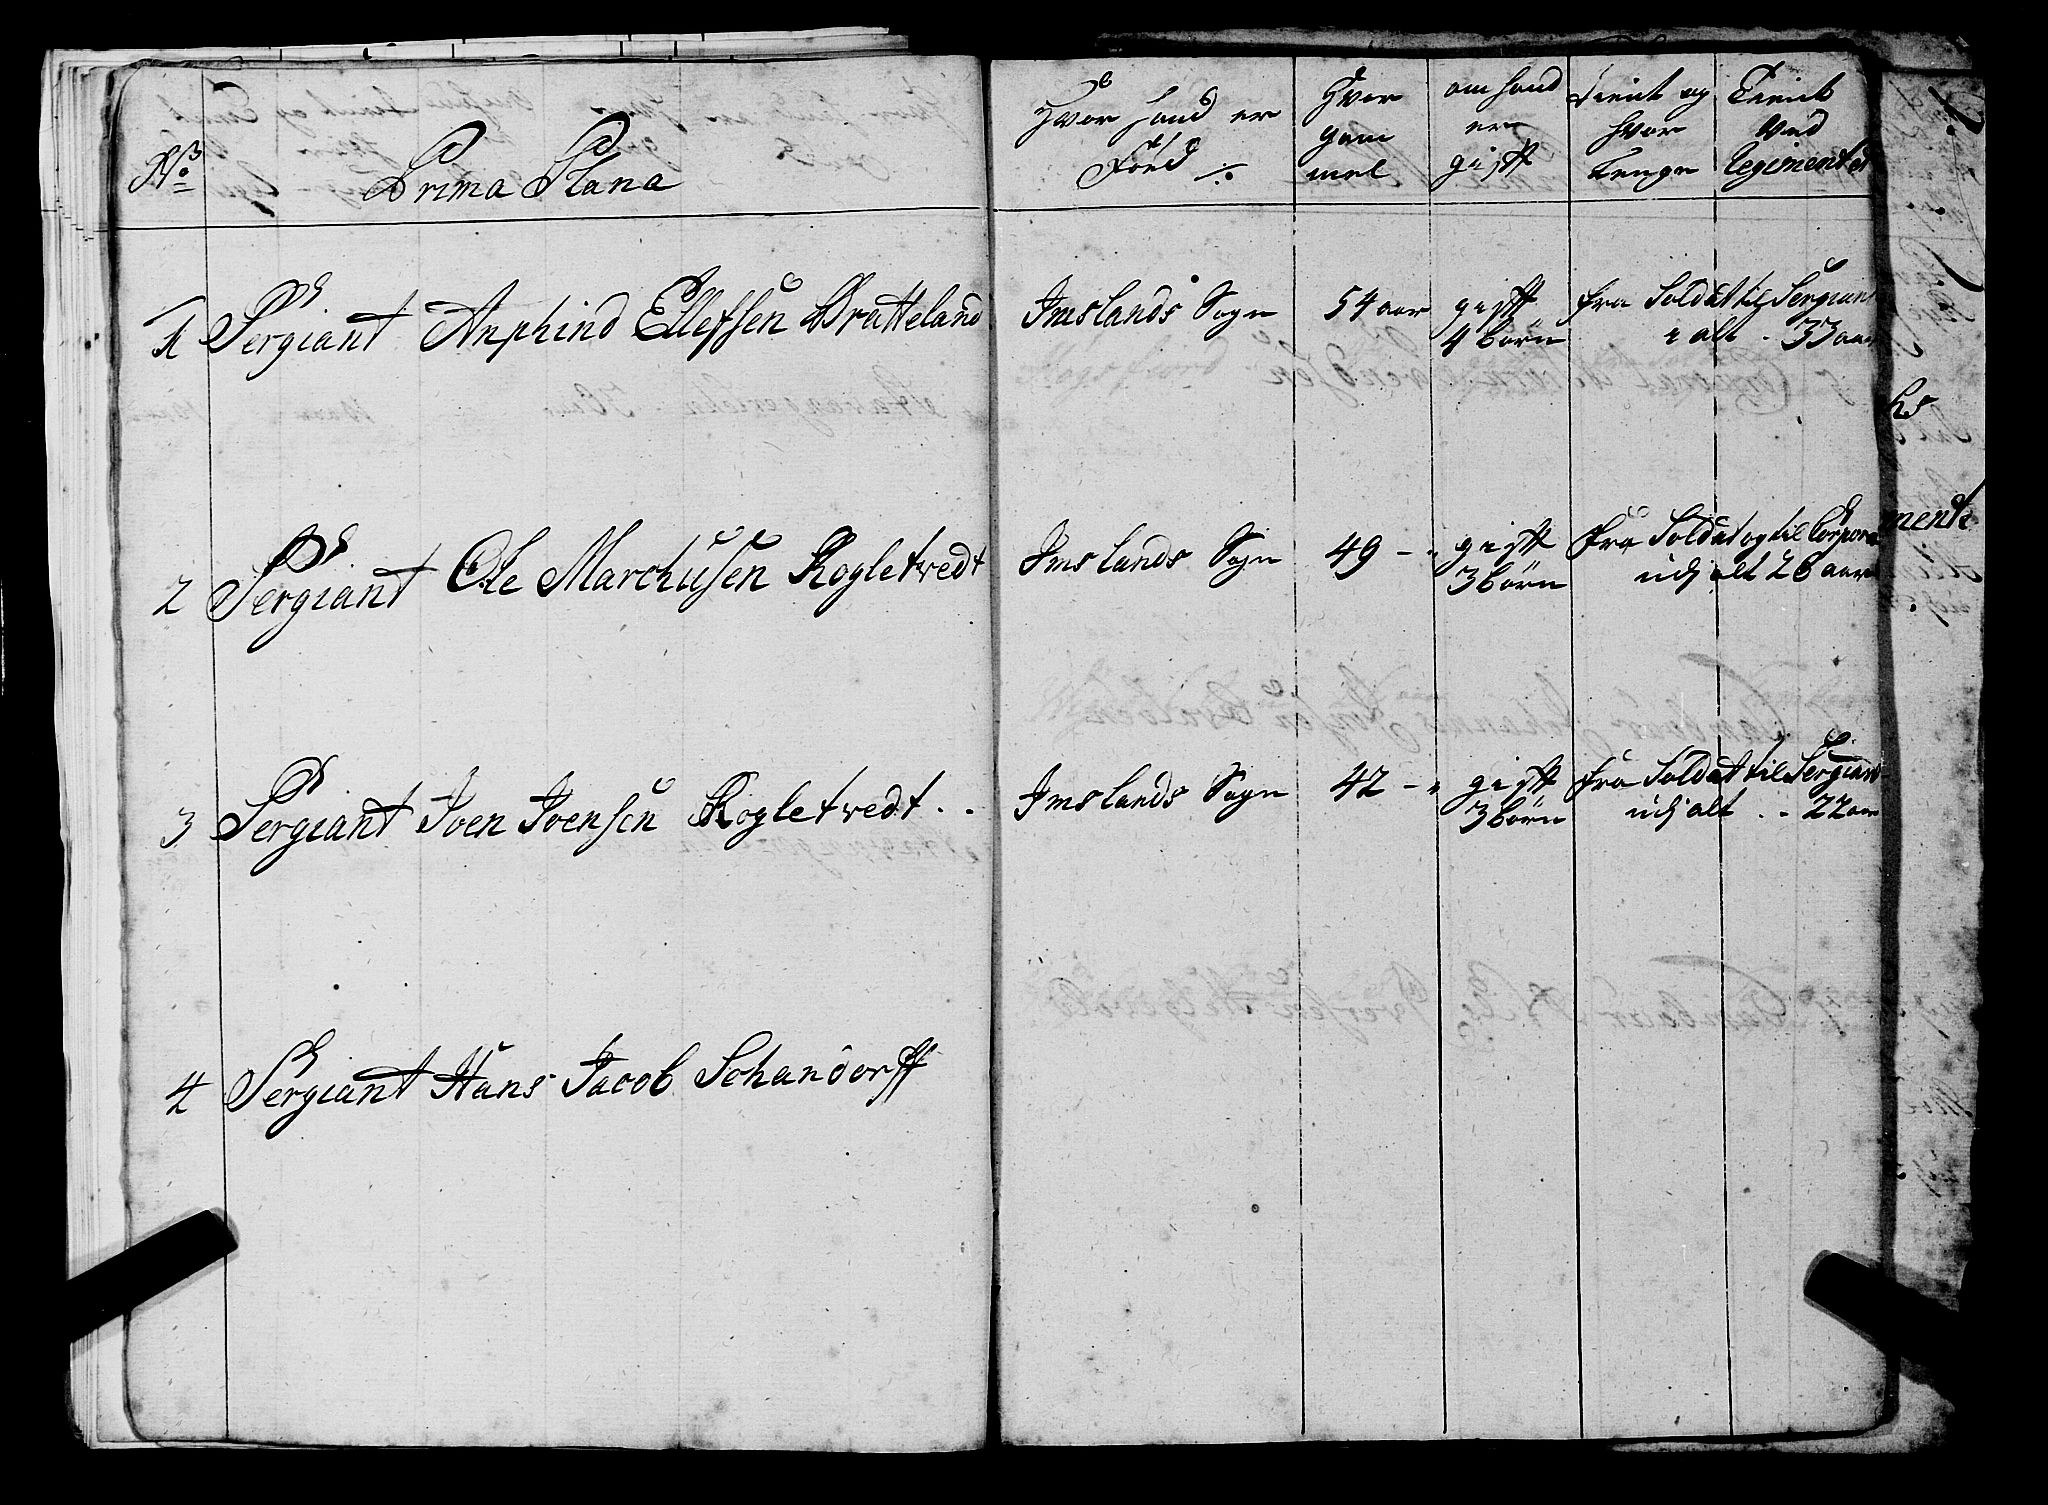 No
Prima Plana
Hvor hand er Föed
Hvor gam mel
om hand er gift
Tient og hvor Lenge
Tient ved Regimentet
1 Sergiant Anphind Ellefsen Bratteland Imslands Sogn 54 aar gift fra Soldat til Sergiant
4 börn i alt 33 aar
2 Sergiant Ole Marchusen Rogletvedt Imslands Sogn 49 - " gift fra Soldat og til Corpora
3 börn udj alt 26 aar
3 Sergiant Iven Ivensen Rogletvedt . . Imslands Sogn 42 - " gift fra Soldat til Sergiant
3 börn udj alt . . 22 aar
4 Sergiant Hans Jacob Schandorff